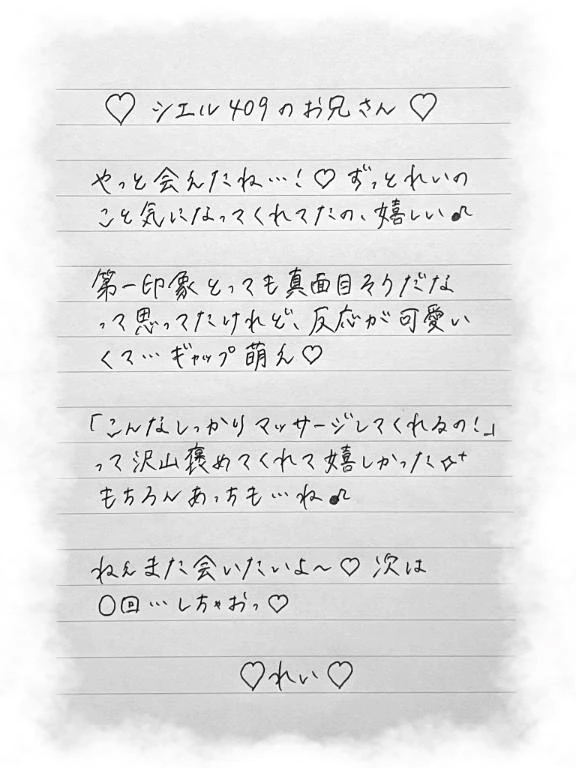 ♡ シエル409のお兄さん ♡
やっと会えたね…！♡ ずっとれいの
こと気になってくれてたの、嬉しい♪
第一印象とっても真面目そうだな
って思ってたけれど、反応が可愛い
くて… ギャップ萌え♡
「こんなしっかりマッサージしてくれるの！」
って沢山褒めてくれて嬉しかった✧⁺
もちろんあっちも…ね♪
ねえまた会いたいよ〜♡ 次は
〇回…しちゃおっ♡
♡れい♡